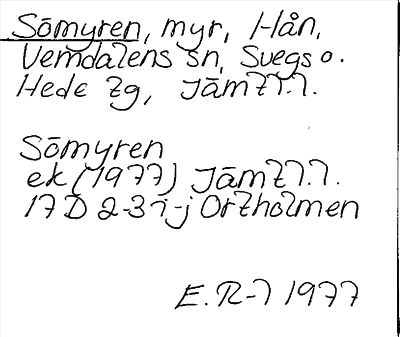 Sömyren, myr, Hån,
Vemdalens sn, Svegs o.
Hede tg, Jämtl.l.
Sömyren
ek (1977) Jämtl.l.
17D 2-3 i-j Ortholmen
E.R-l 1977